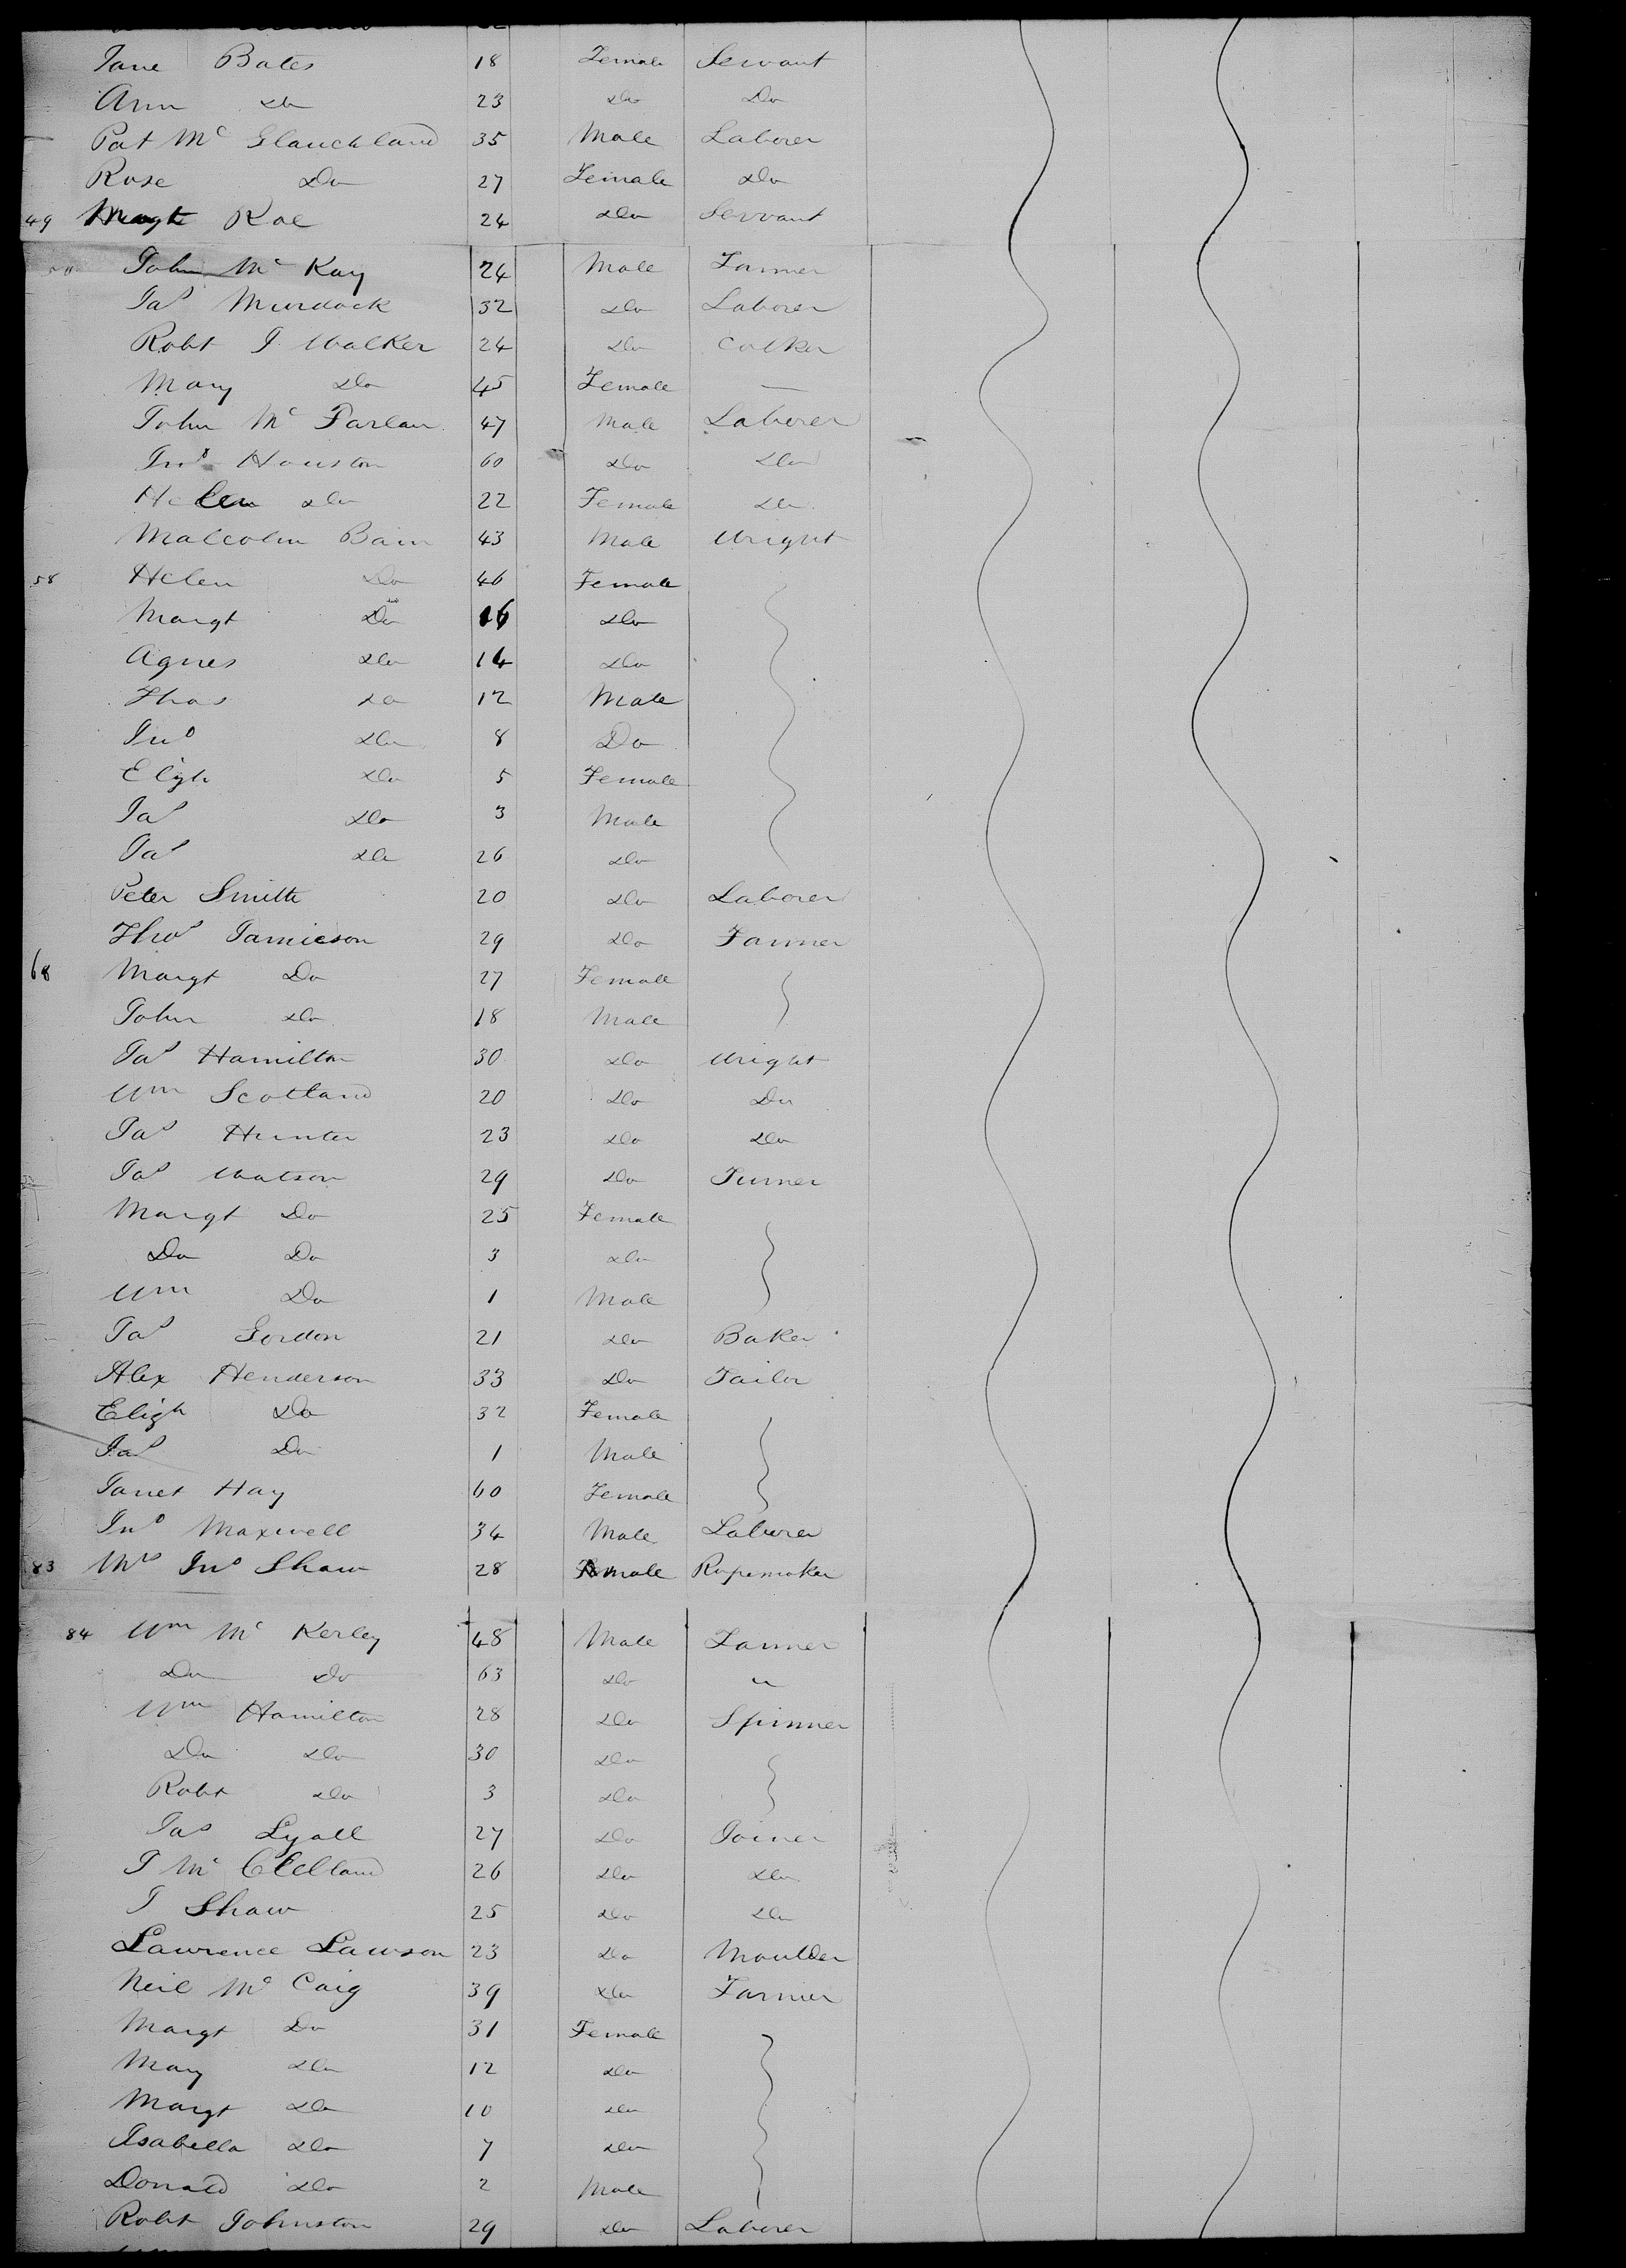 Jane Bates 18 Female Servant
Ann Do 23 Do Do
Pat Mc Glauchland 35 Male Laborer
Rose Do 27 Female Do
49 Margt Rae 24 Do Servant
John Mc Kay 24 Male Farmer
Jas Murdock 32 Do Laborer
Robt J Walker 24 Do Calker
Mary Do 45 Female —
John Mc Farlan 47 Male Laborer
Jno Houston 60 Do Do
Helen Do 22 Female Do
Malcolm Bain 43 Male Wright
58 Helen Do 46 Female
Margt Do 16 Do
Agnes Do 14 Do
Thos Do 12 Male
Jno Do 8 Do
Elizh Do 5 Female
Jas Do 3 Male
Jas Do 26 Do
Peter Smith 20 Do Laborer
Thos Jamieson 29 Do Farmer
68 Margt Do 27 Female
John Do 18 Male
Jas Hamilton 30 Do Wright
Wm Scotland 20 Do Do
Jas Hunter 23 Do Do
Jas Watson 29 Do Turner
Margt Do 25 Female
Do Do 3 Do
Wm Do 1 Male
Jas Gordon 21 Do Baker
Alex Henderson 33 Do Tailor
Elizh Do 32 Female
Jas Do 1 Male
Janet Hay 60 Female
Jno Maxwell 34 Male Laborer
83 Mrs Jno Shaw 28 Female Ropemaker
84 Wm Mc Kerley 48 Male Farmer
Do Do 63 Do "
Wm Hamilton 28 Do Spinner
Do Do 30 Do
Robt Do 3 Do
Jas Lyall 27 Do Joiner
J Mc Clelland 26 Do Do
J Shaw 25 Do Do
Lawrence Lawson 23 Do Moulder
Neil Mc Caig 39 Do Farmer
Margt Do 31 Female
Mary Do 12 Do
Margt Do 10 Do
Isabella Do 7 Do
Donald Do 2 Male
Robt Johnston 29 Do Laborer